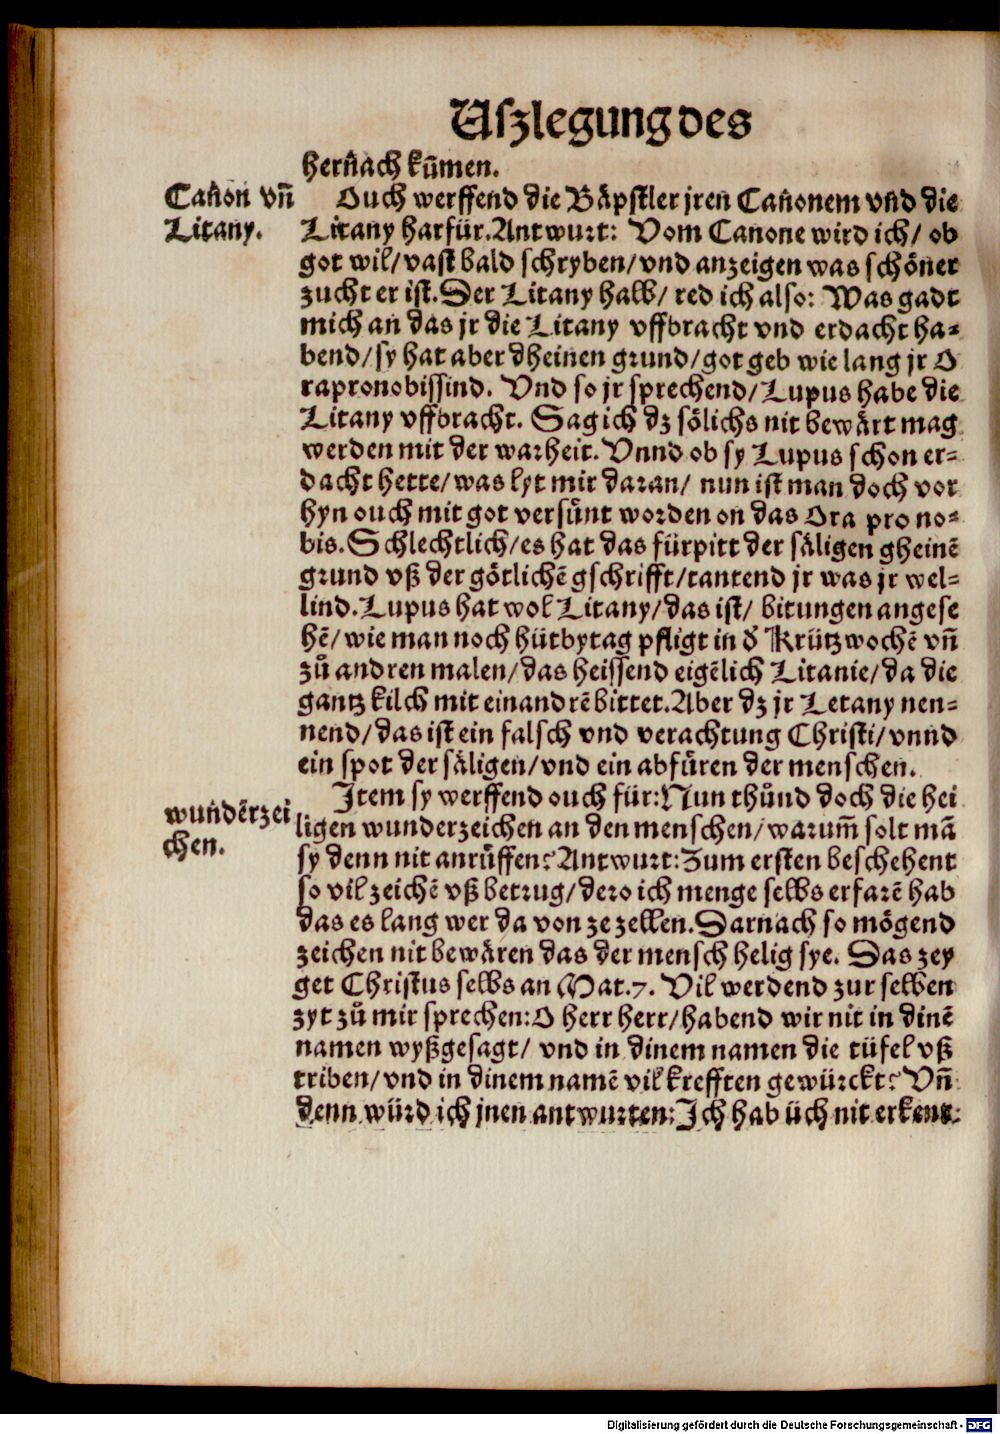 Uſzlegung des
hernach kūmen.
Canon vñ
Litany.
Ouch werffend die Bäpſtler jren Canonem vnd die
Litany harfür. Antwurt: Vom Canone wird ich/ ob
got wil/ vaſt bald ſchryben/ vnd anzeigen was ſchöner
zucht er iſt. Der Litany halb/ red ich alſo: Was gadt
mich an das jr die Litany vffbracht vnd erdacht ha⸗
bend/ ſy hat aber dheinen grund/ got geb wie lang jr O
rapronobiſſind. Vnd ſo jr ſprechend/ Lupus habe die
Litany vffbracht. Sag ich dz ſölichs nit bewärt mag
werden mit der warheit. Vnnd ob ſy Lupus ſchon er⸗
dacht hette/ was lyt mir daran/ nun iſt man doch vor
hyn ouch mit got verſünt worden on das Ora pro no⸗
bis. Schlechtlich/ es hat das fürpitt der ſäligen gheinē
grund vß der götlichē gſchrifft/ tantend jr was jr wel⸗
lind. Lupus hat wol Litany/ das iſt/ bitungen angeſe
hē/ wie man noch hütbytag pfligt in d̕ Krützwochē vñ
zů andren malen/ das heiſſend eigēlich Litanie/ da die
gantz kilch mit einandrē bittet. Aber dz jr Letany nen⸗
nend/ das iſt ein falſch vnd verachtung Chriſti/ vnnd
ein ſpot der ſäligen/ vnd ein abfüren der menſchen.
wunderzei
chen.
Item ſy werffend ouch für: Nun thůnd doch die hei
ligen wunderzeichen an den menſchen/ warum̄ ſolt mā
ſy denn nit anrüffen? Antwurt: Zum erſten beſchehent
ſo vil zeichē vß betrug/ dero ich menge ſelbs erfarē hab
das es lang wer da von ze zellen. Darnach ſo mögend
zeichen nit bewären das der menſch helig ſye. Das zey
get Chriſtus ſelbs an Mat. 7. Vil werdend zur ſelben
zyt zů mir ſprechen: O herr herr/ habend wir nit in dinē
namen wyßgeſagt/ vnd in dinem namen die tüfel vß
triben/ vnd in dinem namē vil krefften gewürckt? Vñ
denn würd ich jnen antwurten: Ich hab üch nit erkent:
Digitalisierung gefördert durch die Deutsche Forschungsgemeinschaft - DFG